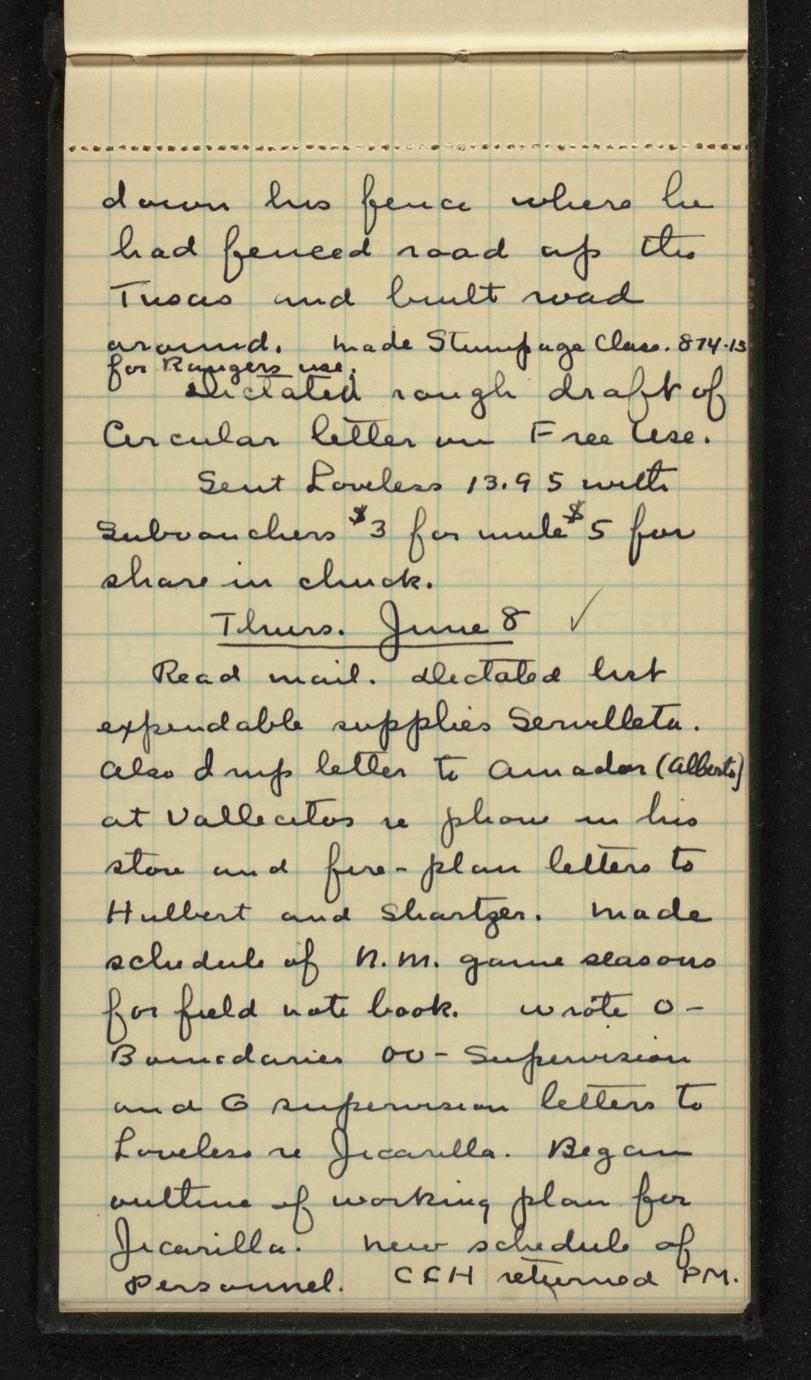 down his fence where he
had fenced road up the
Tusas and built road
around. Made Stumpage Class. 874-13
for Rangers use.
Dictated rough draft of
Circular letter on Free Use.
Sent Loveless 13.95 with
Subvouchers $3 for mule $5 for
share in chuck.
Thurs. June 8 ✓
Read mail. Dictated list
expendable supplies Servilleta.
Also d letter to Amador (Alberto)
at Vallecitos re phone in his
store and fire-plan letters to
Hulbert and Shartzer. Made
schedule of N.M. game seasons
for field note book. Wrote O-
Boundaries OO- Supervision
and G supervision letters to
Loveless re Jicarilla. Began
outline of working plan for
Jicarilla. New schedule of
Personnel. CEH returned PM.